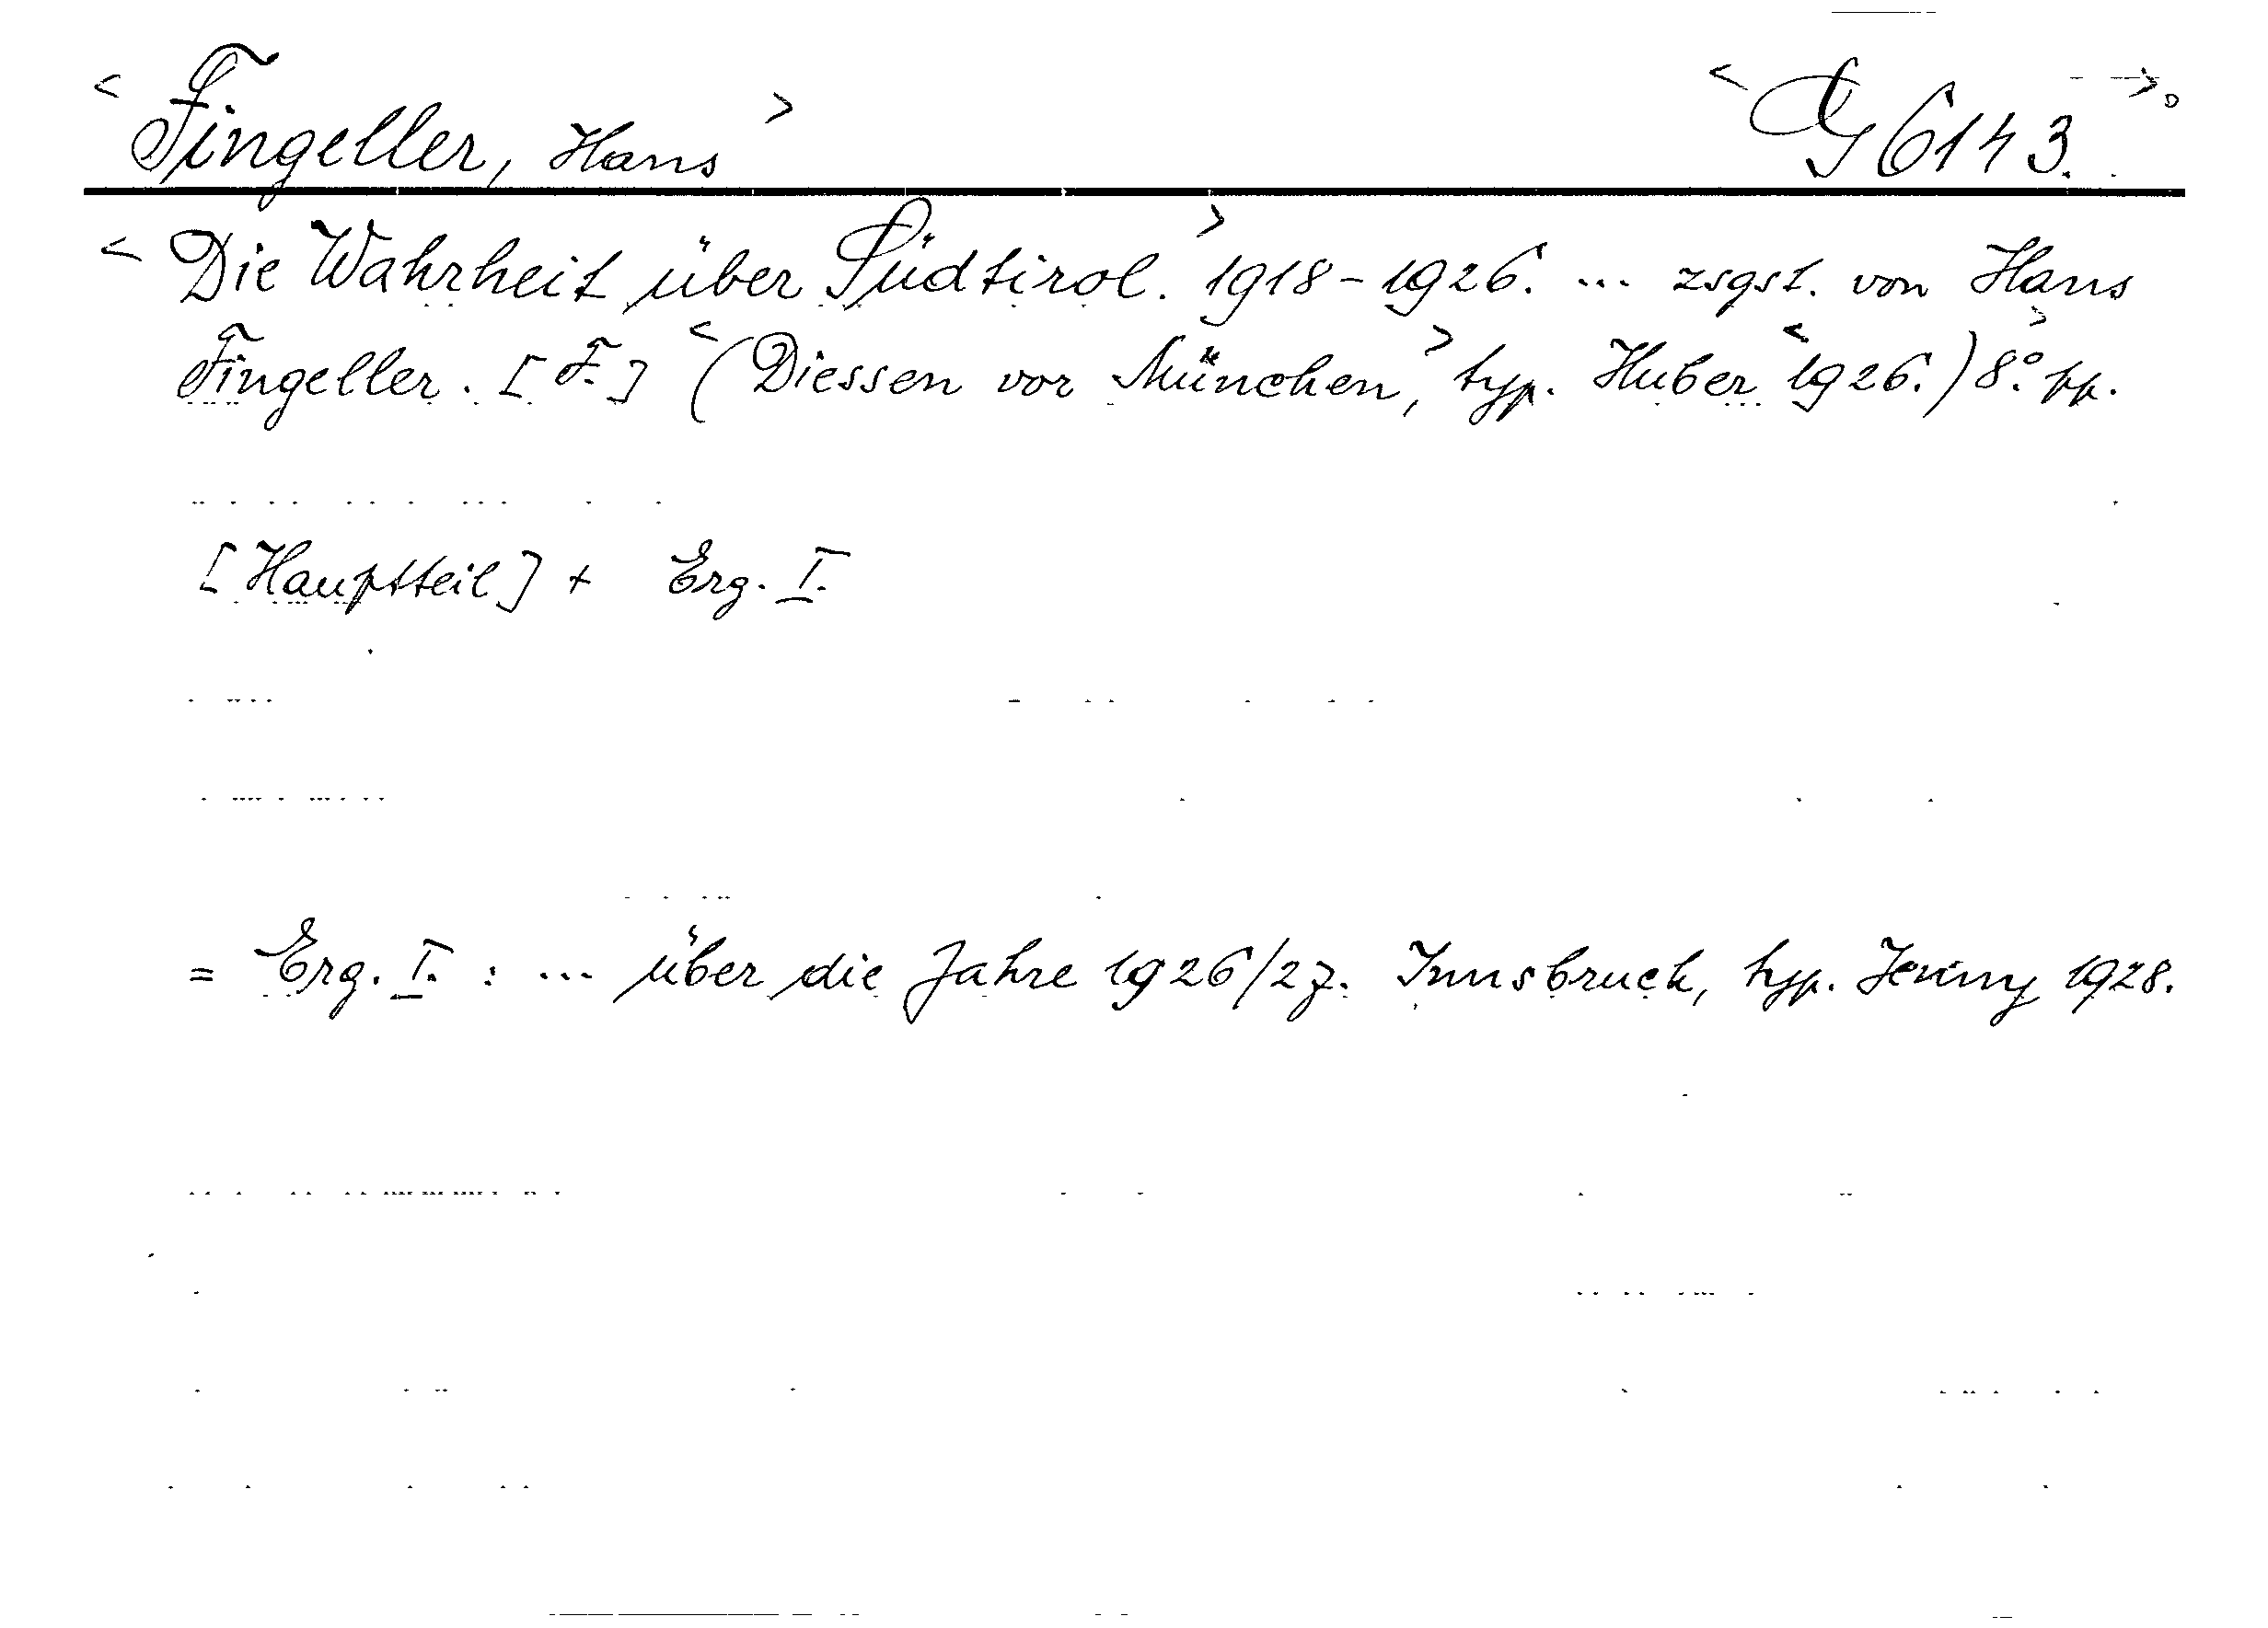 < Fingeller, Hans > < G 6143. >
< Die Wahrheit über Südtirol. > 1918-1926. ... zsgst. von Hans
Fingeller. [F.] < (Diessen vor München, > typ. Huber < 1926.) > 8° pp.
[Hauptteil] + Erg. I.
= Erg. I. : ... über die Jahre 1926/27. Innsbruck, typ. Jenny 1928.